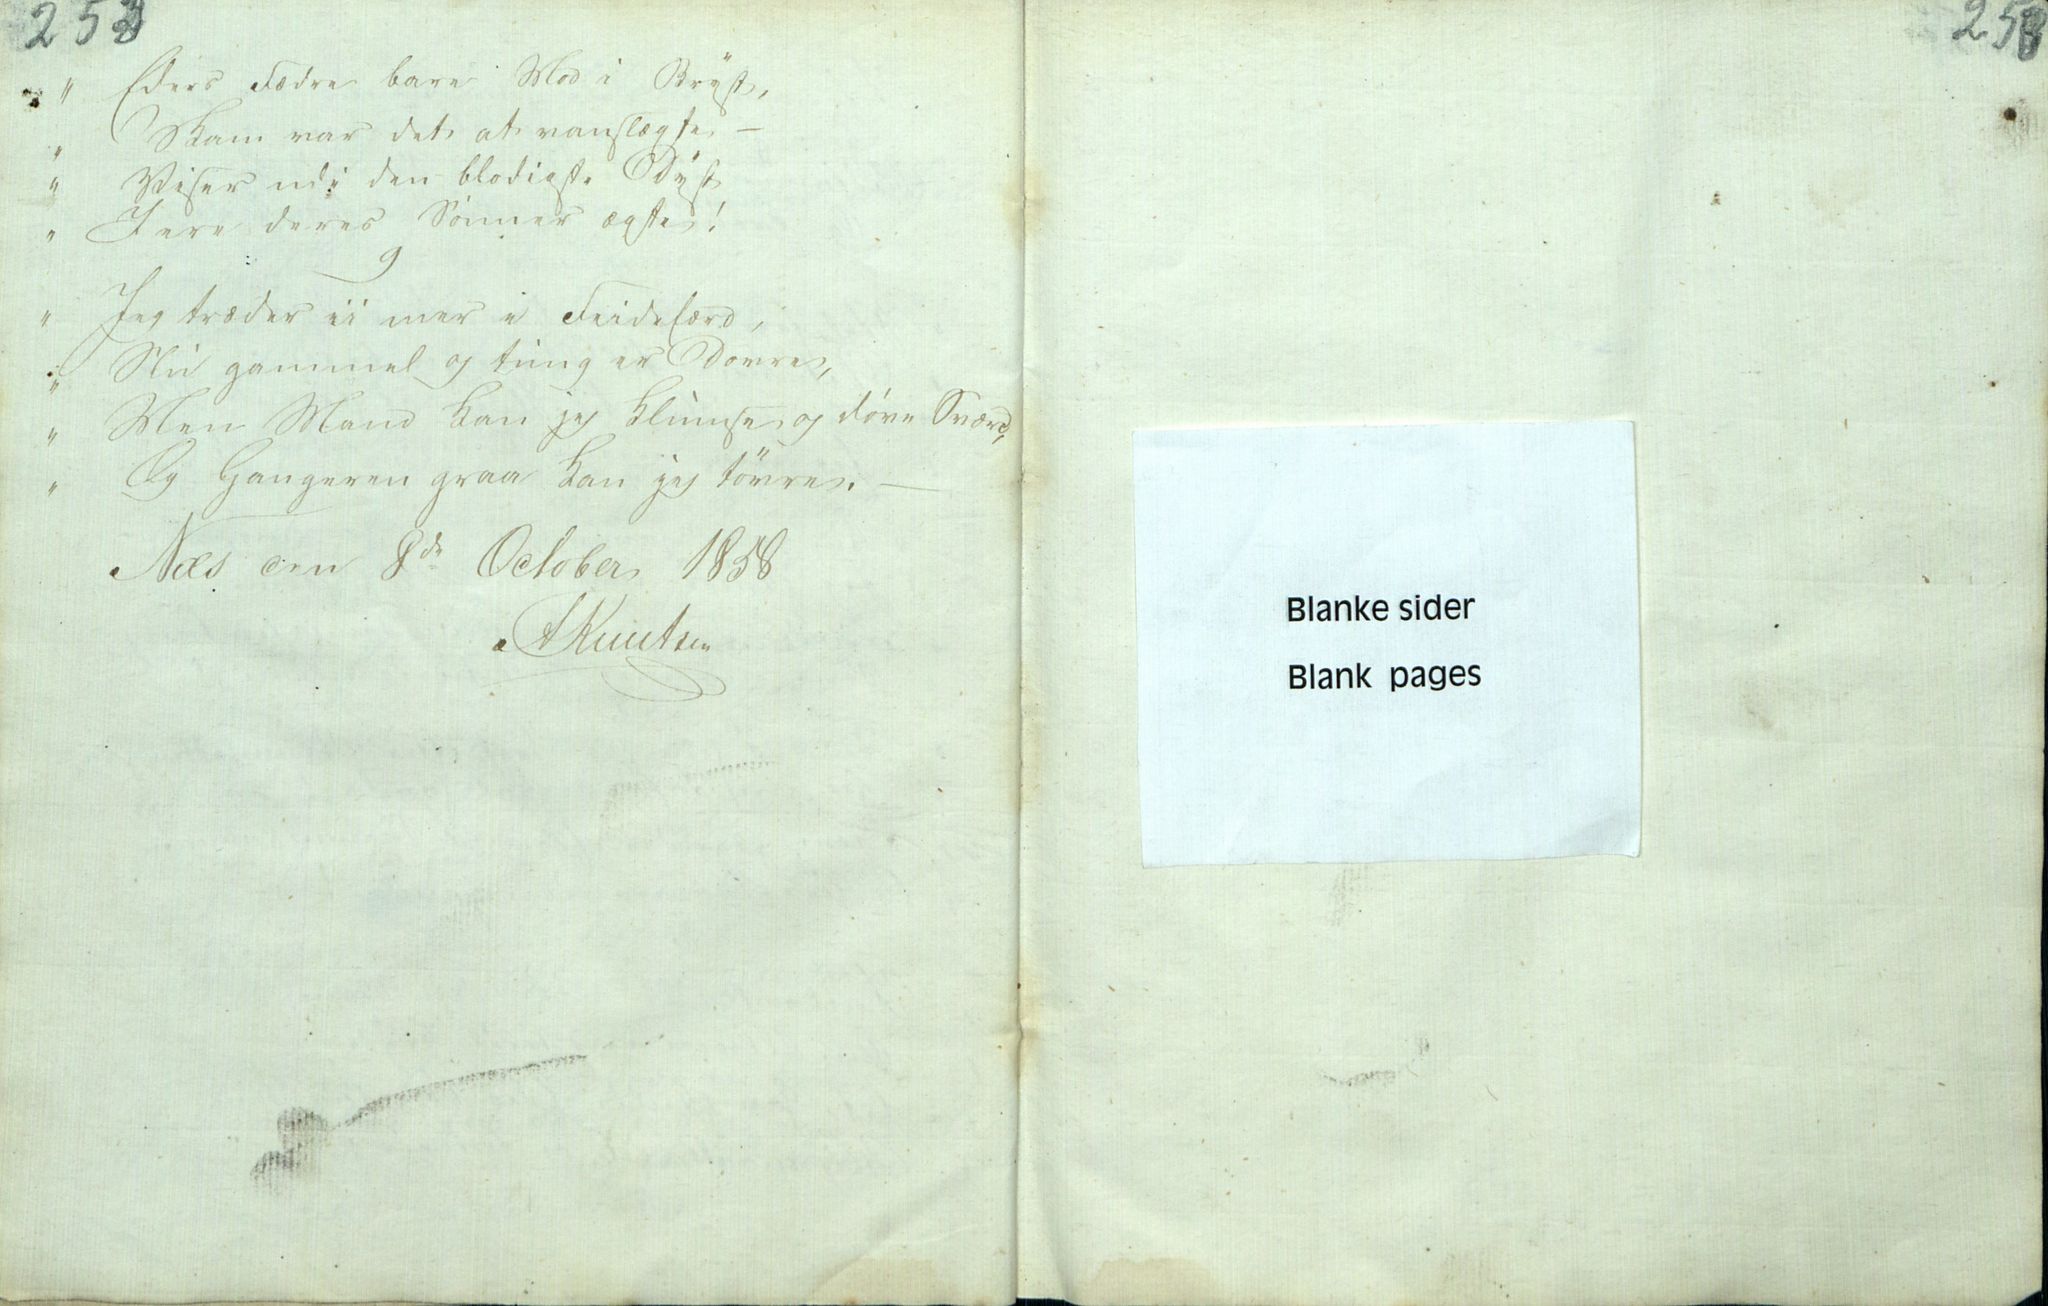 252
" Eders Fædre bare Mod i Bryst,
" Skam var det at vanslægte —
" Viser udi den blodigste Dyst
" I ere deres Sönner ægte!
9
" Jeg træder ei mer i Feidefærd,
" Nu gammel og tung er Dovre,
" Men Mand kan jeg klumse og döve Sværd,
" Og Gangeren graa kan jeg tövre. —
Næs den 8de October 1858
AKnutsen
253
Blanke sider
Blank pages